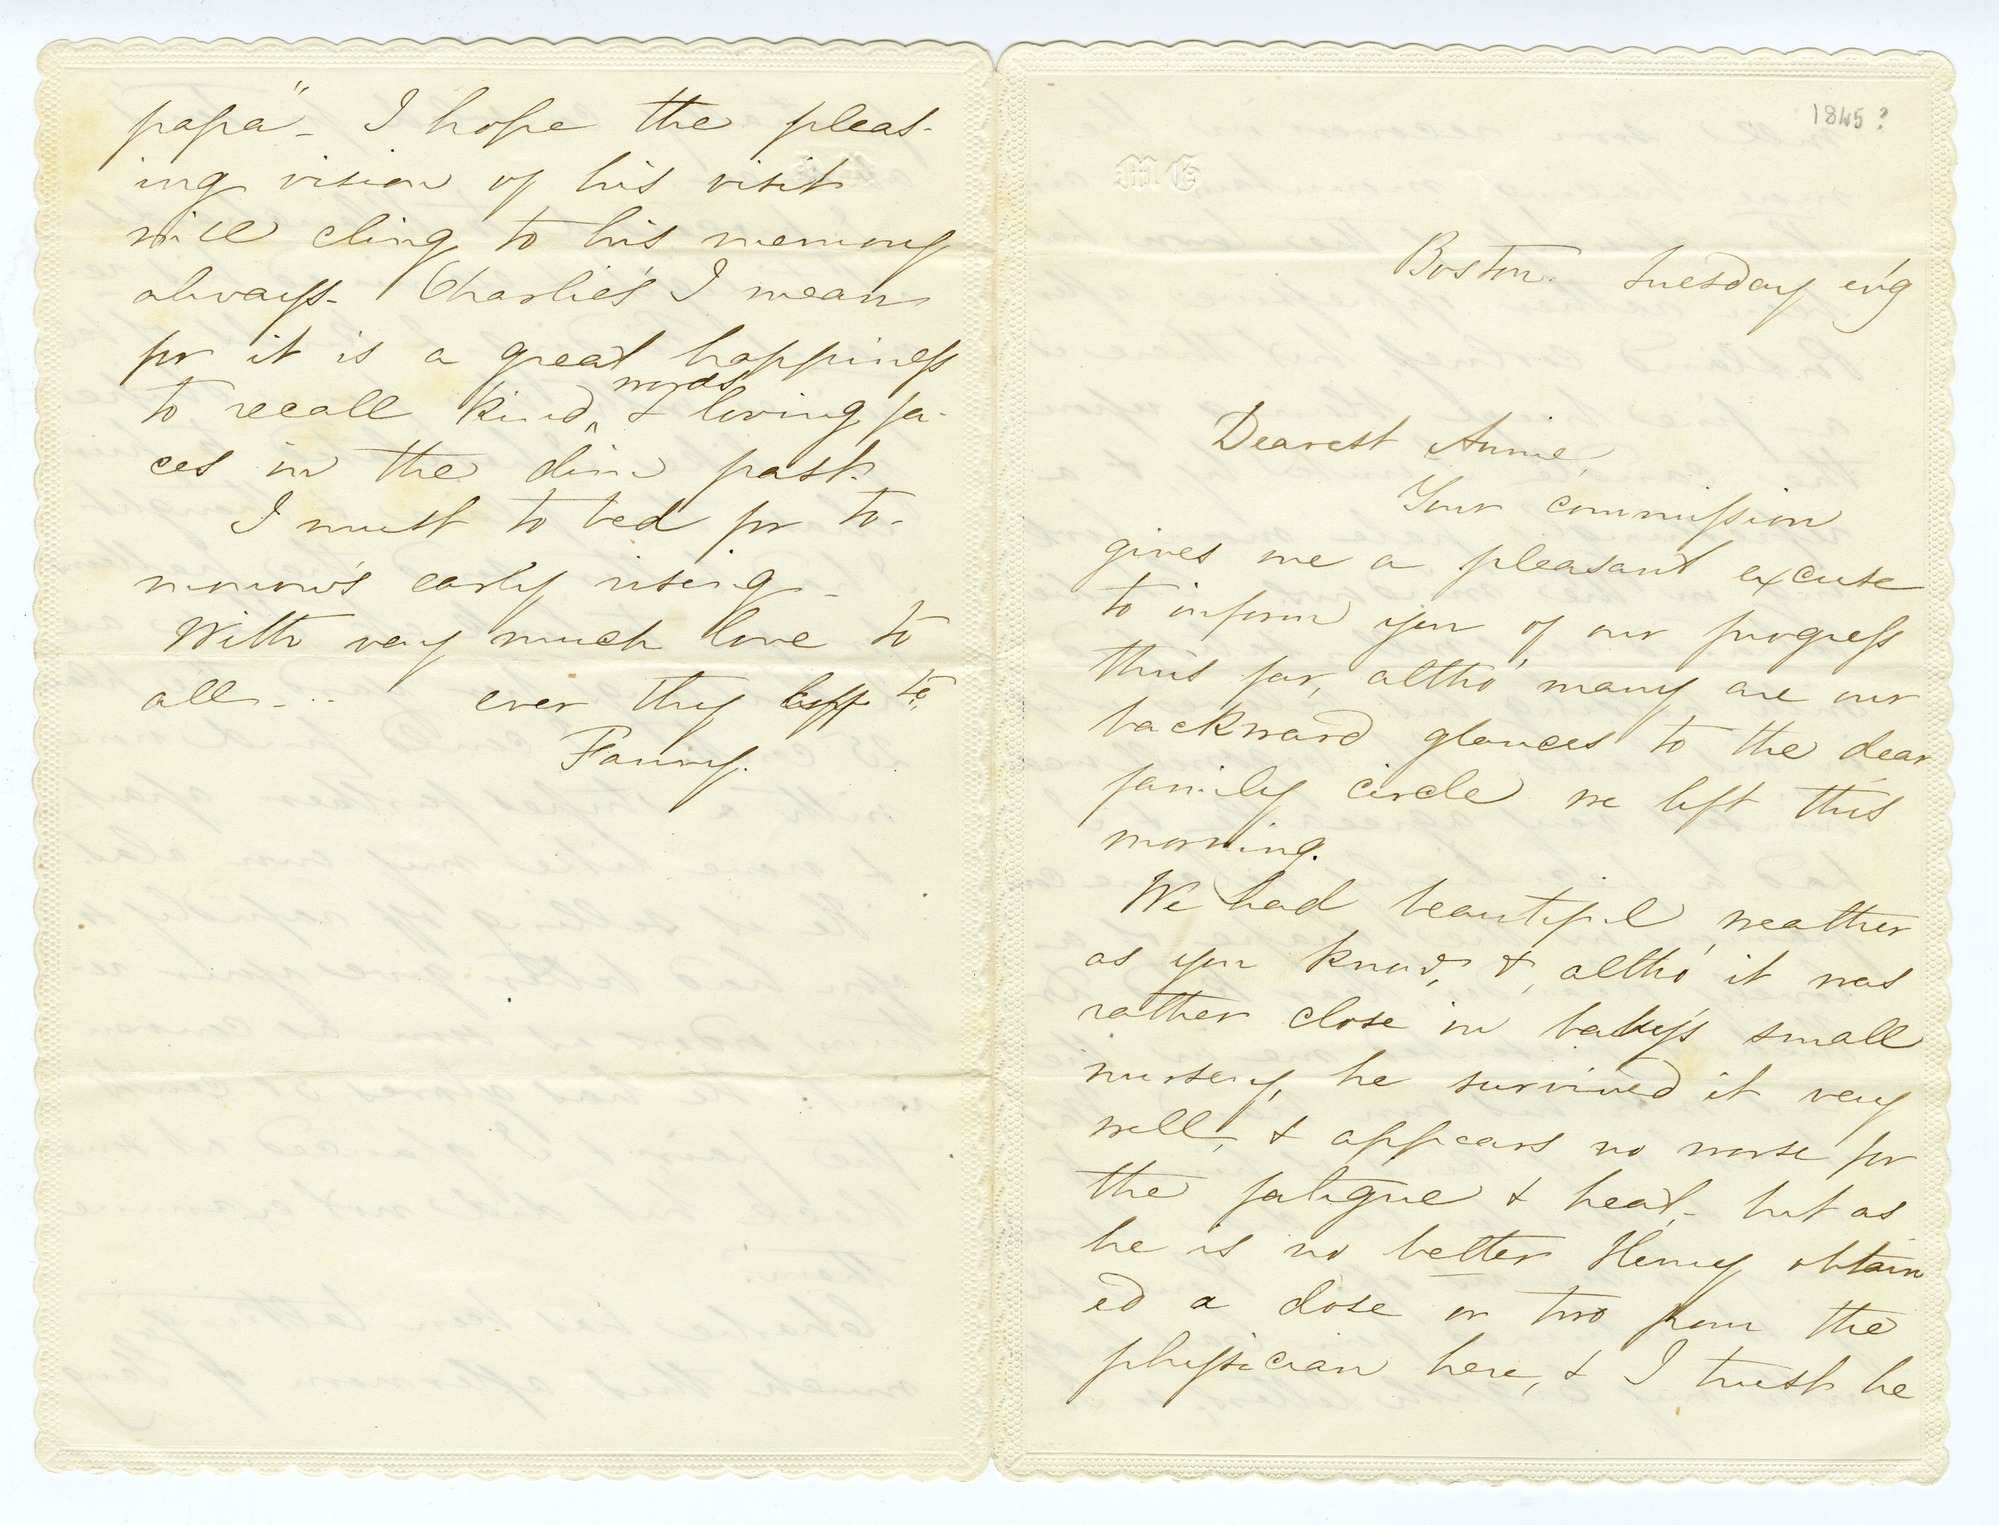 1845?
M E
Boston. Tuesday ev'g
Dearest Annie,
Your commission
gives me a pleasant excuse
to inform you of our progress
thus far, altho' many are our
backward glances to the dear
family circle we left this
morning.
We had beautiful weather
as you know, &, altho' it was
rather close in baby's small
nursery, he survived it very
well, & appears no worse for
the fatigue & heat - but as
he is no better Henry obtain
ed a dose or two from the
physician here, & I trust he
papa" - I hope the pleas-
ing vision of his visit
will cling to his memory
always - Charlie's I mean
for it is a great happiness
to recall kind words & loving fa-
ces in the dim past.
I must to bed for to-
morrow's early rising -
With very much love to
all - ever thy
Fanny.